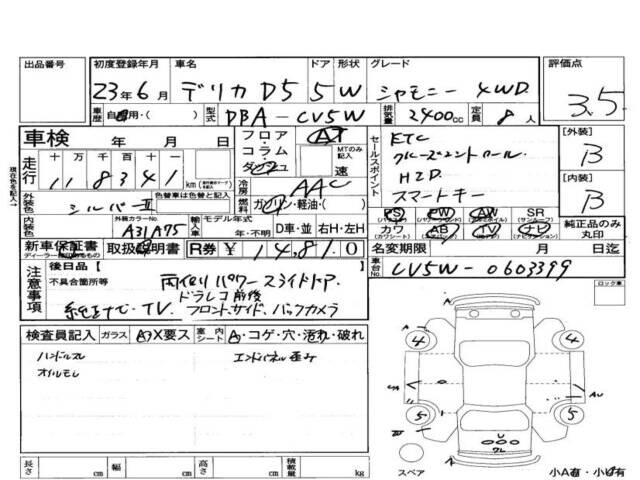 出品番号 初度登録年月 車名 ドア 形状 グレード 評価点
23年6月 デリカD5 5W シャモニー 4WD 3.5
車歴 自家用・( ) 型式 DBA-CV5W 排気量 2400cc 定員 8人
車検 年 月 日
フロア コラム ダッシュ AT MTのみ記入 速
セールスポイント
ETC
クルーズコントロール
HID
スマートキー
[外装] B
[内装] B
走行 十万千百十一
118341 km
冷房 AAC
燃料 ガソリン・軽油・( )
外装色 シルバーⅡ 色替車は色替と記入
内装色 外装カラーNo. A31A75
輸入車 モデル年式 年・不明 D車・並 右H・左H
PS PW AW SR (サンルーフ)
カワ (カワシート) AB TV ナビ
純正品のみ丸印
新車保証書 取扱説明書 R券 ¥14,810
ディーラー
名変期限 月 日迄
車台No. CV5W-0603399
注意事項
後日品[ ]
不具合箇所等
両側パワースライドドア.
ドラレコ前後
純正ナビ・TV. フロント.サイド.バックカメラ
ロック車
検査員記入 ガラス A・X要ス 室内シート A・コゲ・穴・汚れ・破れ
ハンドルスレ
オイルモレ
エンドパネル歪み
A
4 4
AU
5 5
スペア
小A有・小U有
長さ cm 幅 cm 高さ cm 積載量 kg